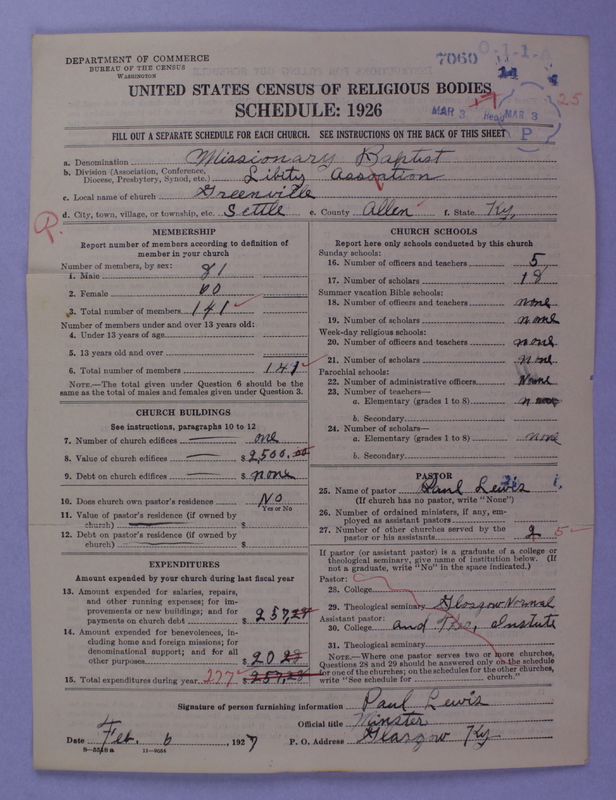 DEPARTMENT OF COMMERCE
BUREAU OF THE CENSUS
WASHINGTON
7060
O-1-1-A
14
4
UNITED STATES CENSUS OF RELIGIOUS BODIES
SCHEDULE: 1926
MAR 3
MAR 3
P
25
FILL OUT A SEPARATE SCHEDULE FOR EACH CHURCH. SEE INSTRUCTIONS ON THE BACK OF THIS SHEET
a. Denomination Missionary Baptist
b. Division (Association, Conference, Diocese, Presbytery, Synod, etc.) Libity Assortion
c. Local name of church Greenville
d. City, town, village, or township, etc. Settle e. County Allen f. State Ky,
P.
MEMBERSHIP
Report number of members according to definition of member in your church
Number of members, by sex:
1. Male 81
2. Female 60
3. Total number of members 141
Number of members under and over 13 years old:
4. Under 13 years of age
5. 13 years old and over
6. Total number of members 141
NOTE.—The total given under Question 6 should be the same as the total of males and females given under Question 3.
CHURCH BUILDINGS
See instructions, paragraphs 10 to 12
7. Number of church edifices one
8. Value of church edifices $2,500.00
9. Debt on church edifices $ none
10. Does church own pastor's residence No
Yes or No
11. Value of pastor's residence (if owned by church) $
12. Debt on pastor's residence (if owned by church) $
EXPENDITURES
Amount expended by your church during last fiscal year
13. Amount expended for salaries, repairs, and other running expenses; for improvements or new buildings; and for payments on church debt $ 257,28
14. Amount expended for benevolences, including home and foreign missions; for denominational support; and for all other purposes $ 20 28
15. Total expenditures during year 277 $ 257,28
CHURCH SCHOOLS
Report here only schools conducted by this church
Sunday schools:
16. Number of officers and teachers 5
17. Number of scholars 18
Summer vacation Bible schools:
18. Number of officers and teachers none
19. Number of scholars none
Week-day religious schools:
20. Number of officers and teachers none
21. Number of scholars none
Parochial schools:
22. Number of administrative officers None
23. Number of teachers—
a. Elementary (grades 1 to 8) none
b. Secondary
24. Number of scholars—
a. Elementary (grades 1 to 8) none
b. Secondary
PASTOR
25. Name of pastor Paul Lewis
(If church has no pastor, write "None")
26. Number of ordained ministers, if any, employed as assistant pastors
27. Number of other churches served by the pastor or his assistants 2 5
If pastor (or assistant pastor) is a graduate of a college or theological seminary, give name of institution below. (If not a graduate, write "No" in the space indicated.)
Pastor:
28. College
29. Theological seminary Glasgow Normal
Assistant pastor:
30. College and Theo, Instute
31. Theological seminary
NOTE.—Where one pastor serves two or more churches, Questions 28 and 29 should be answered only on the schedule for one of the churches; on the schedules for the other churches, write "See schedule for church."
Signature of person furnishing information Paul Lewis
Official title Minster
Date Feb. 6, 1927 P. O. Address Glasgow Ky
8-5518a 11-9054